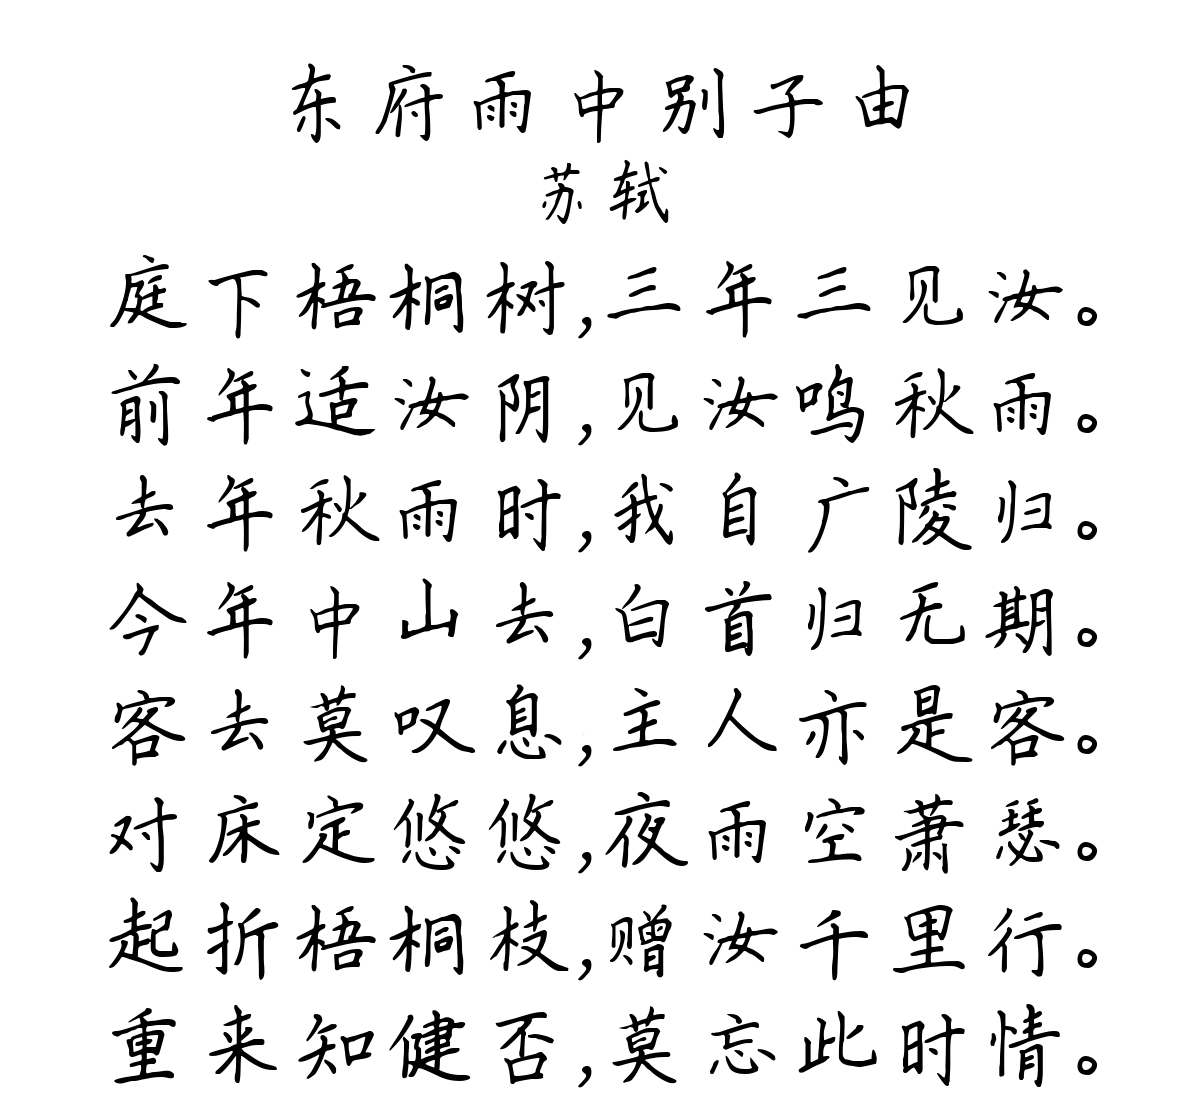 东府雨中别子由
苏轼
庭下梧桐树,三年三见汝。
前年适汝阴,见汝鸣秋雨。
去年秋雨时,我自广陵归。
今年中山去,白首归无期。
客去莫叹息,主人亦是客。
对床定悠悠,夜雨空萧瑟。
起折梧桐枝,赠汝千里行。
重来知健否,莫忘此时情。